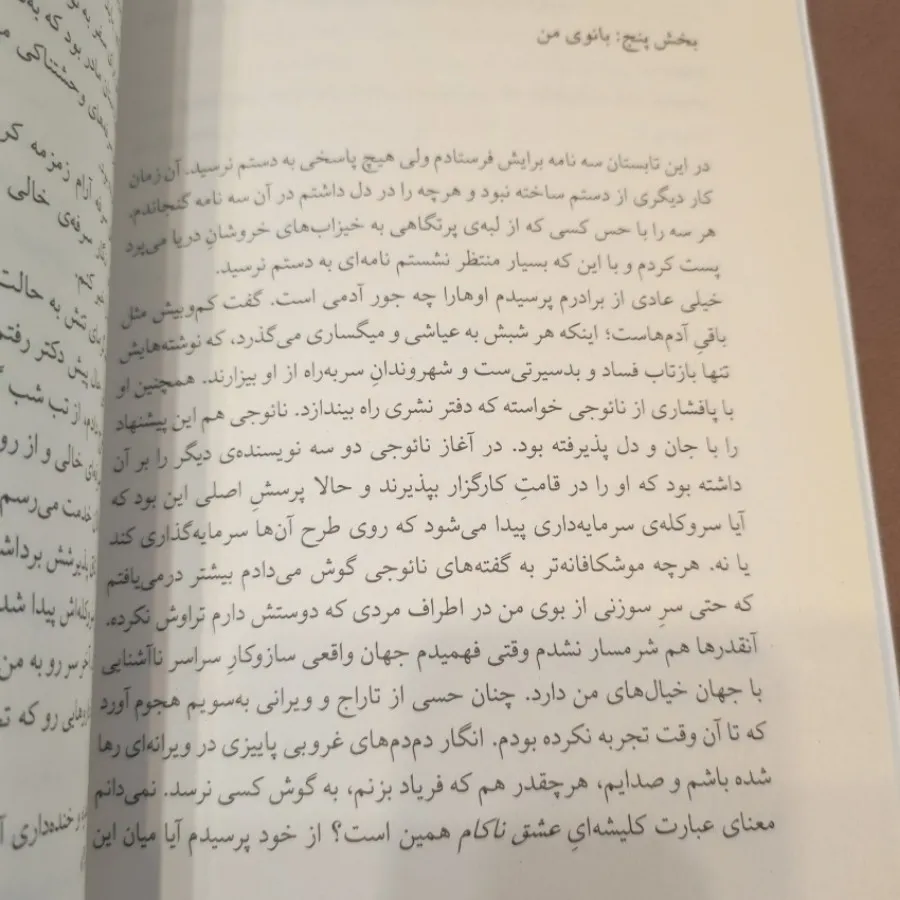 بخش پنج: بانوی من
در این تابستان سه نامه برایش فرستادم ولی هیچ پاسخی به دستم نرسید. آن زمان
کار دیگری از دستم ساخته نبود و هرچه را در دل داشتم در آن سه نامه گنجاندم.
هر سه را با حس کسی که از لبه‌ی پرتگاهی به خیزاب‌های خروشانِ دریا می‌پرد
پست کردم و با این که بسیار منتظر نشستم نامه‌ای به دستم نرسید.
خیلی عادی از برادرم پرسیدم اوهارا چه جور آدمی است. گفت کم‌وبیش مثل
باقیِ آدم‌هاست؛ اینکه هر شبش به عیاشی و میگساری می‌گذرد، که نوشته‌هایش
تنها بازتاب فساد و بدسیرتی‌ست و شهروندانِ سربه‌راه از او بیزارند. همچنین او
با پافشاری از نائوجی خواسته که دفتر نشری راه بیندازد. نائوجی هم این پیشنهاد
را با جان و دل پذیرفته بود. در آغاز نائوجی دو سه نویسنده‌ی دیگر را بر آن
داشته بود که او را در قامتِ کارگزار بپذیرند و حالا پرسشِ اصلی این بود که
آیا سروکله‌ی سرمایه‌داری پیدا می‌شود که روی طرح آن‌ها سرمایه‌گذاری کند
یا نه. هرچه موشکافانه‌تر به گفته‌های نائوجی گوش می‌دادم بیشتر درمی‌یافتم
که حتی سرِ سوزنی از بوی من در اطراف مردی که دوستش دارم تراوش نکرده.
آنقدرها هم شرمسار نشدم وقتی فهمیدم جهان واقعی سازوکارِ سراسر ناآشنایی
با جهان خیال‌های من دارد. چنان حسی از تاراج و ویرانی به‌سویم هجوم آورد
که تا آن وقت تجربه نکرده بودم. انگار دم‌دم‌های غروبی پاییزی در ویرانه‌ای رها
شده باشم و صدایم، هرچقدر هم که فریاد بزنم، به گوش کسی نرسد. نمی‌دانم
معنای عبارت کلیشه‌ایِ عشق ناکام همین است؟ از خود پرسیدم آیا میان این